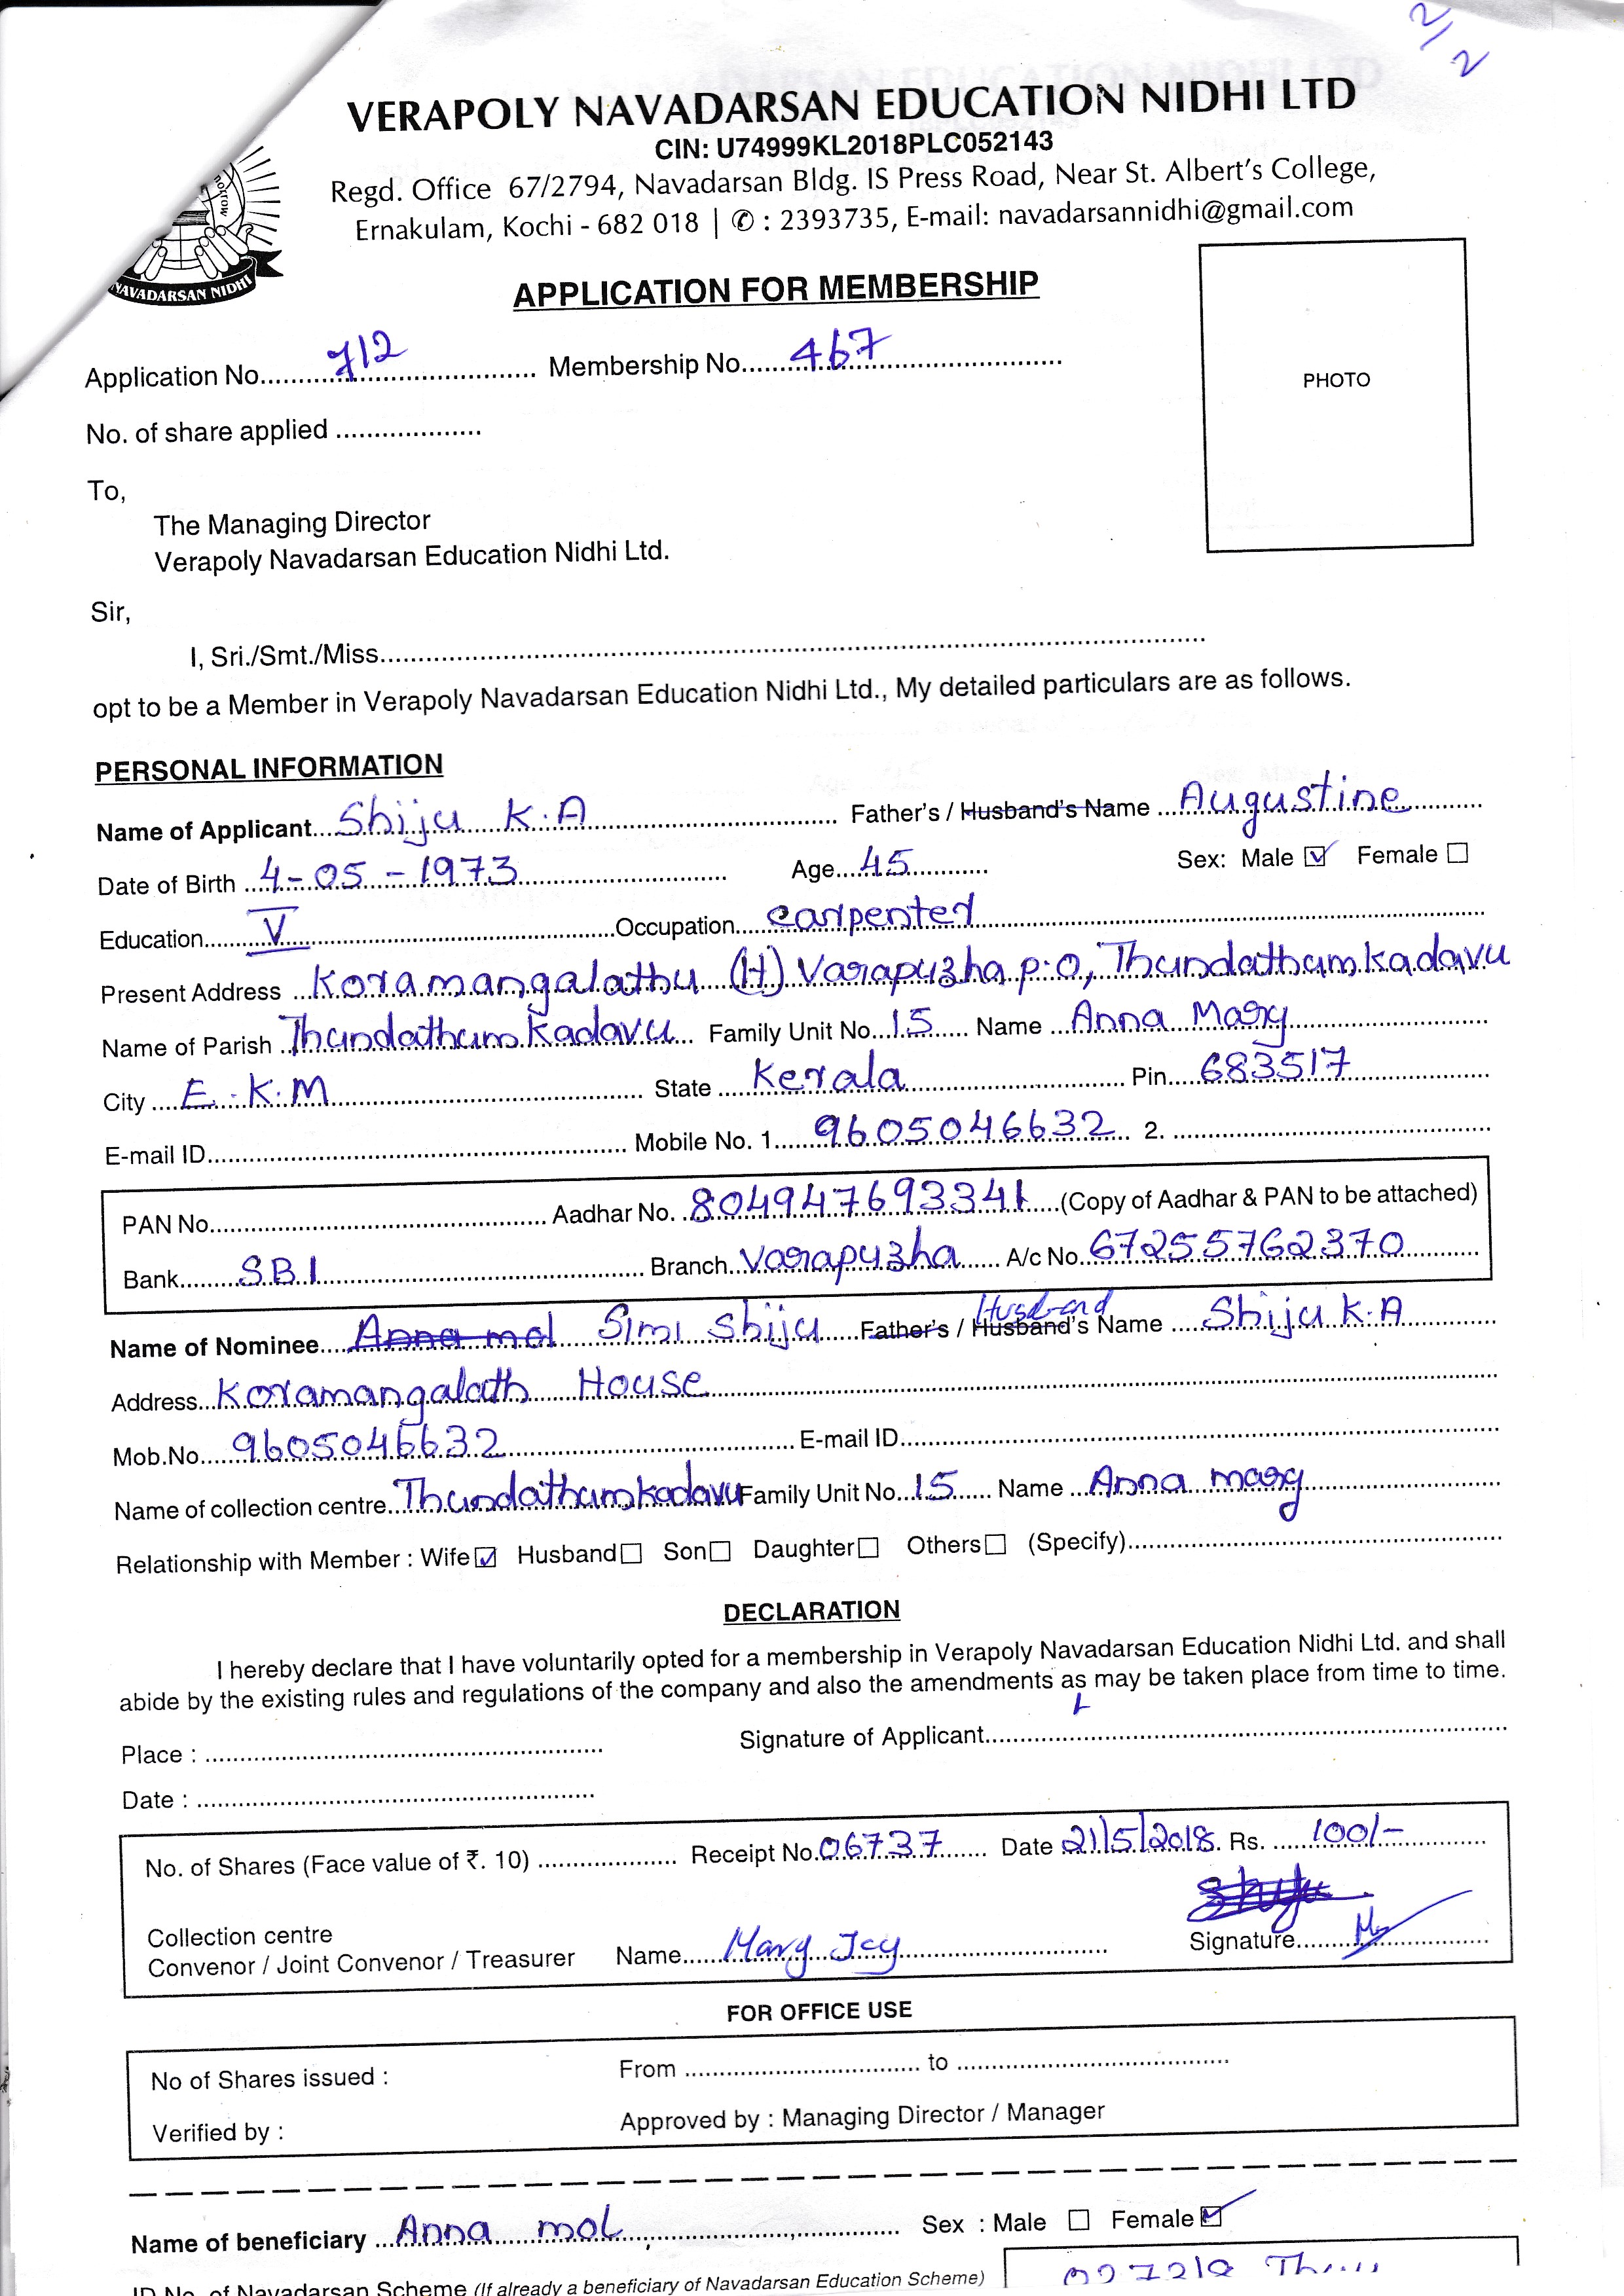 2/2
VERAPOLY NAVADARSAN EDUCATION NIDHI LTD
CIN: U74999KL2018PLC052143
Regd. Office 67/2794, Navadarsan Bldg. IS Press Road, Near St. Albert's College,
Ernakulam, Kochi - 682 018 | ✆ : 2393735, E-mail: navadarsannidhi@gmail.com
NAVADARSAN NIDHI
APPLICATION FOR MEMBERSHIP
Application No. 712 Membership No. 467
PHOTO
No. of share applied
To,
The Managing Director
Verapoly Navadarsan Education Nidhi Ltd.
Sir,
I, Sri./Smt./Miss
opt to be a Member in Verapoly Navadarsan Education Nidhi Ltd., My detailed particulars are as follows.
PERSONAL INFORMATION
Name of Applicant Shiju K.A Father's / Husband's Name Augustine
Date of Birth 4-05-1973 Age 45 Sex: Male ☑ Female ☐
Education V Occupation carpenter
Present Address Koramangalathu (H) Varapuzha p.o, Thundathumkadavu
Name of Parish Thundathumkadavu Family Unit No. 15 Name Anna Mary
City E.K.M State Kerala Pin 683517
E-mail ID Mobile No. 1. 9605046632 2.
PAN No. Aadhar No. 804947693341 (Copy of Aadhar & PAN to be attached)
Bank SBI Branch Varapuzha A/c No. 67255762370
Name of Nominee Anna mol Simi Shiju Father's / Husband's Name Husband Shiju K.A
Address Koramangalath House
Mob.No. 9605046632 E-mail ID
Name of collection centre Thundathumkadavu Family Unit No. 15 Name Anna mary
Relationship with Member : Wife ☑ Husband ☐ Son ☐ Daughter ☐ Others ☐ (Specify)
DECLARATION
I hereby declare that I have voluntarily opted for a membership in Verapoly Navadarsan Education Nidhi Ltd. and shall
abide by the existing rules and regulations of the company and also the amendments as may be taken place from time to time.
Place : Signature of Applicant
Date :
No. of Shares (Face value of ₹. 10) Receipt No. 06737 Date 21/5/2018 Rs. 100/-
Shiju
Collection centre
Convenor / Joint Convenor / Treasurer Name Mary Joy Signature
FOR OFFICE USE
No of Shares issued : From to
Verified by : Approved by : Managing Director / Manager
Name of beneficiary Anna mol Sex : Male ☐ Female ☑
ID No. of Navadarsan Scheme (If already a beneficiary of Navadarsan Education Scheme)